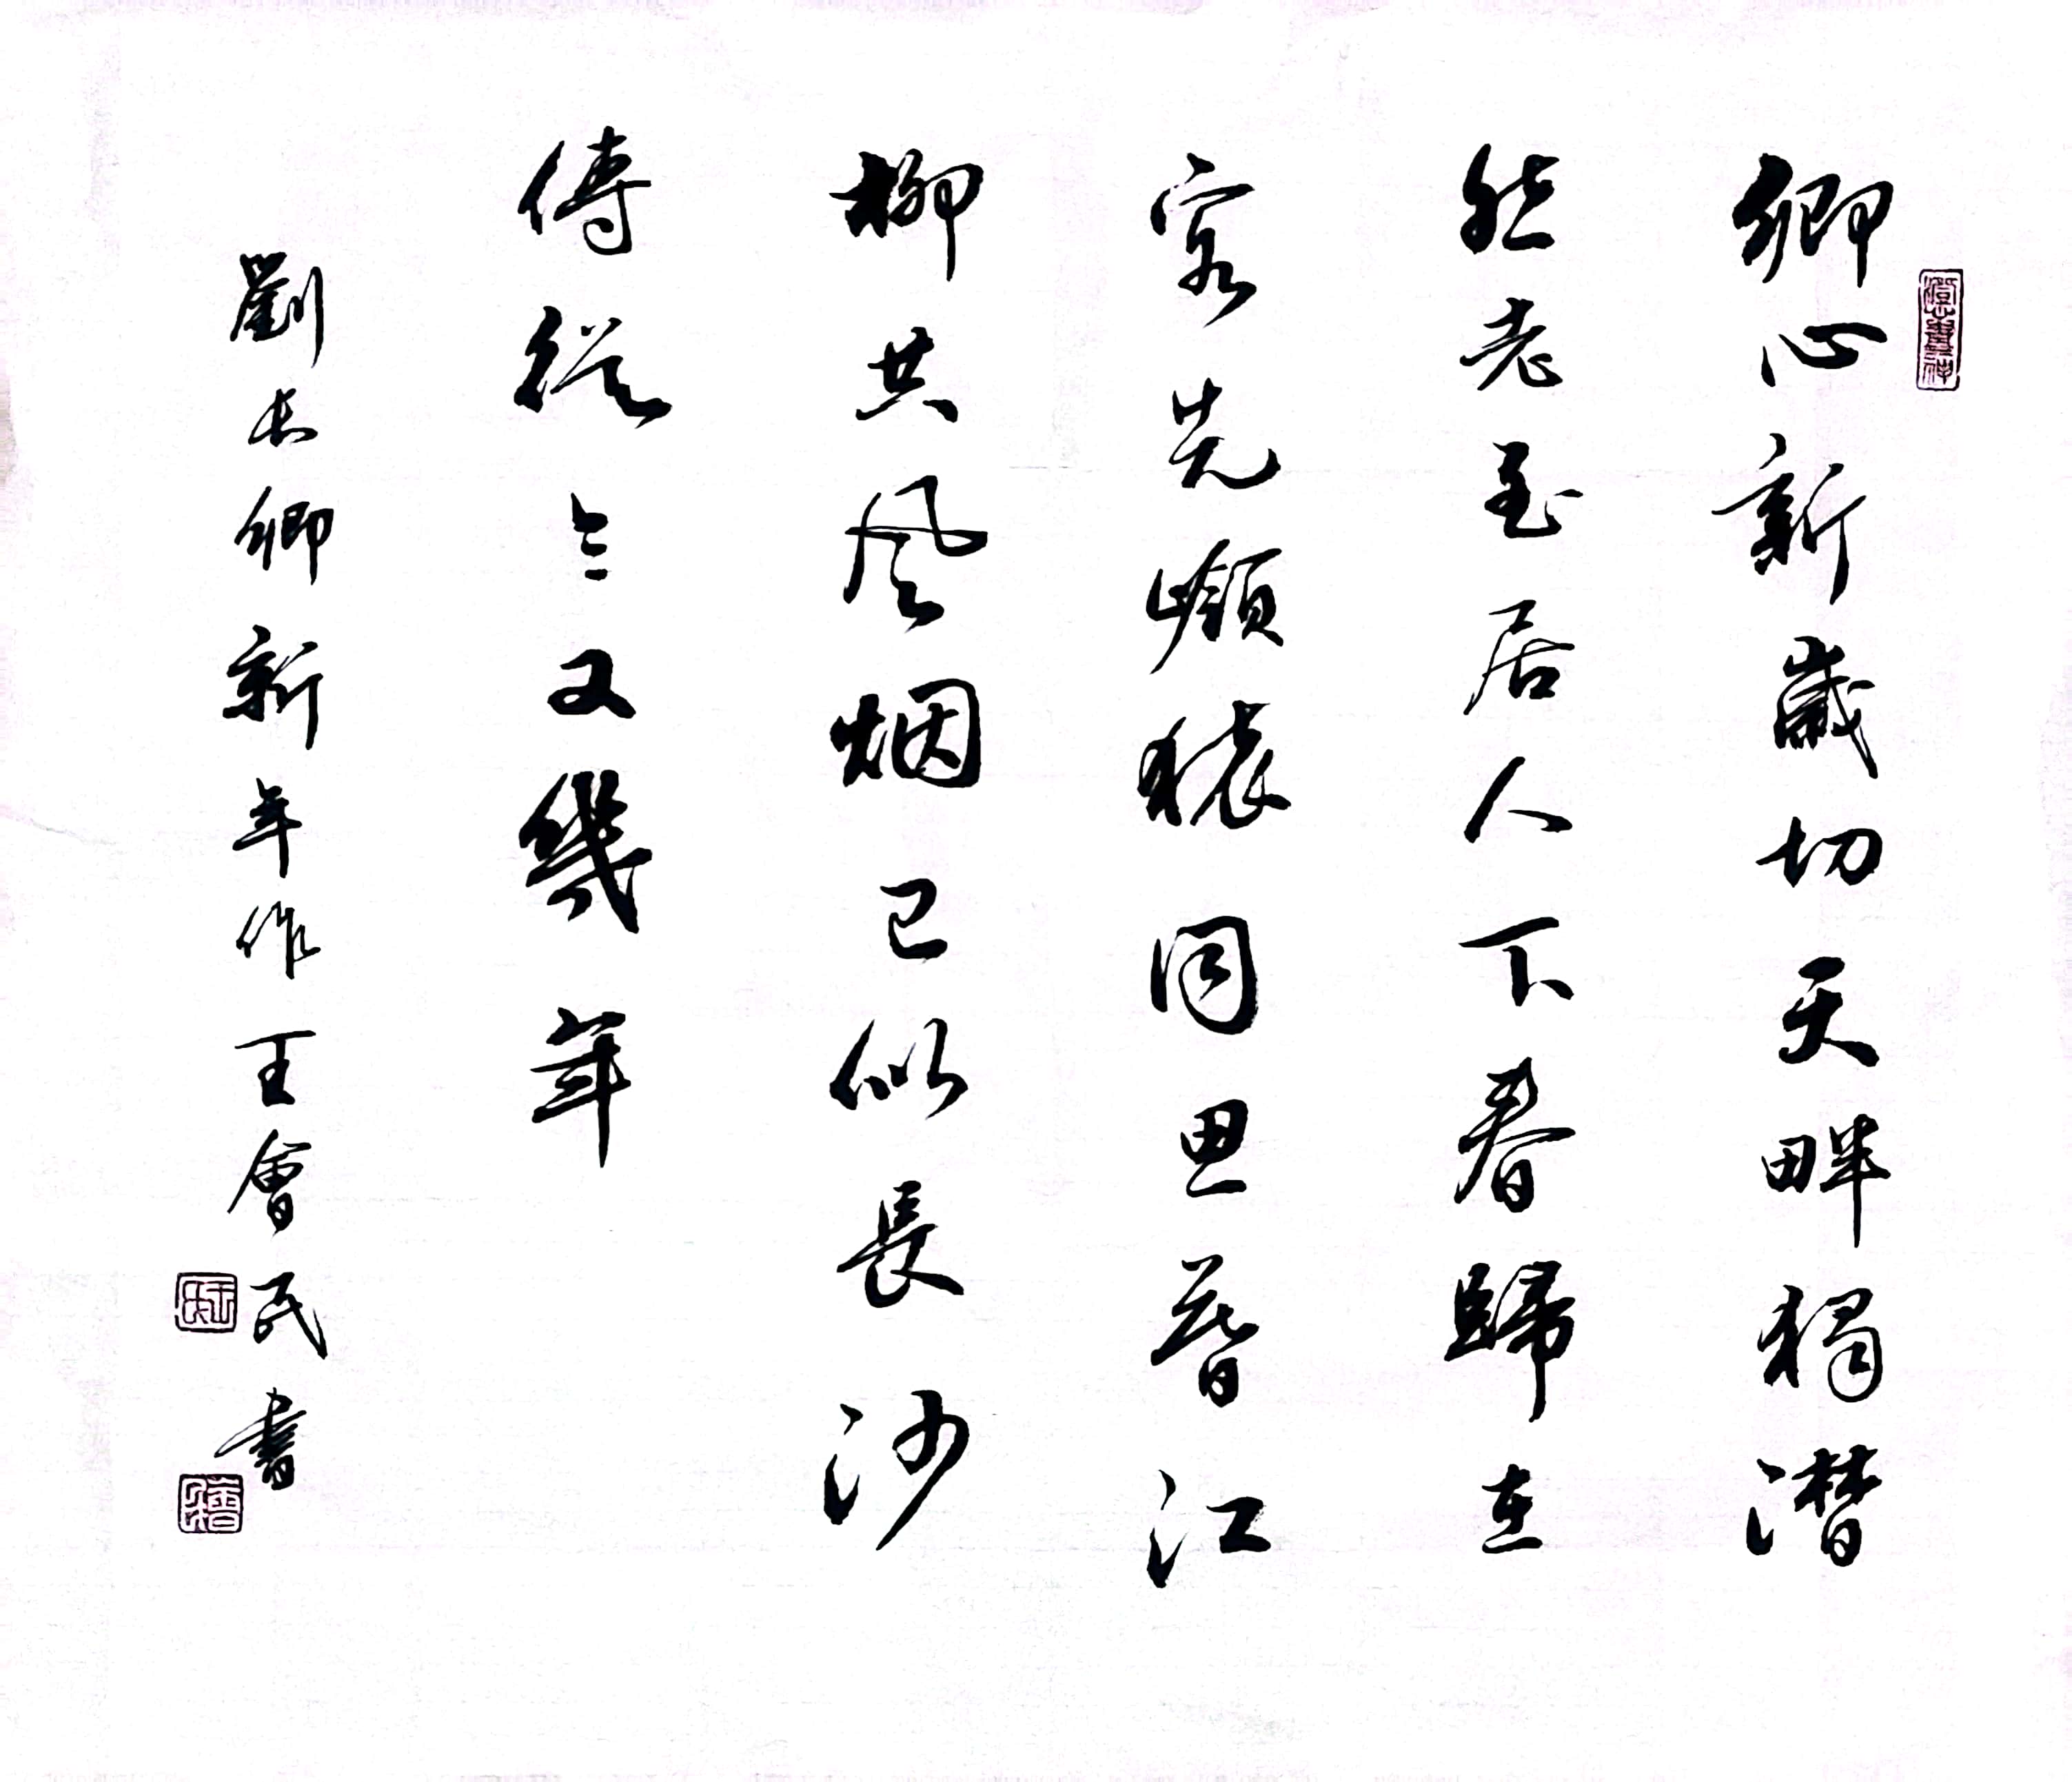 鄉心新歲切天畔獨潸
然老至居人下春歸在
客先嶺猿同旦暮江
柳共風烟已似長沙
傅從今又幾年
劉長卿新年作王會民書